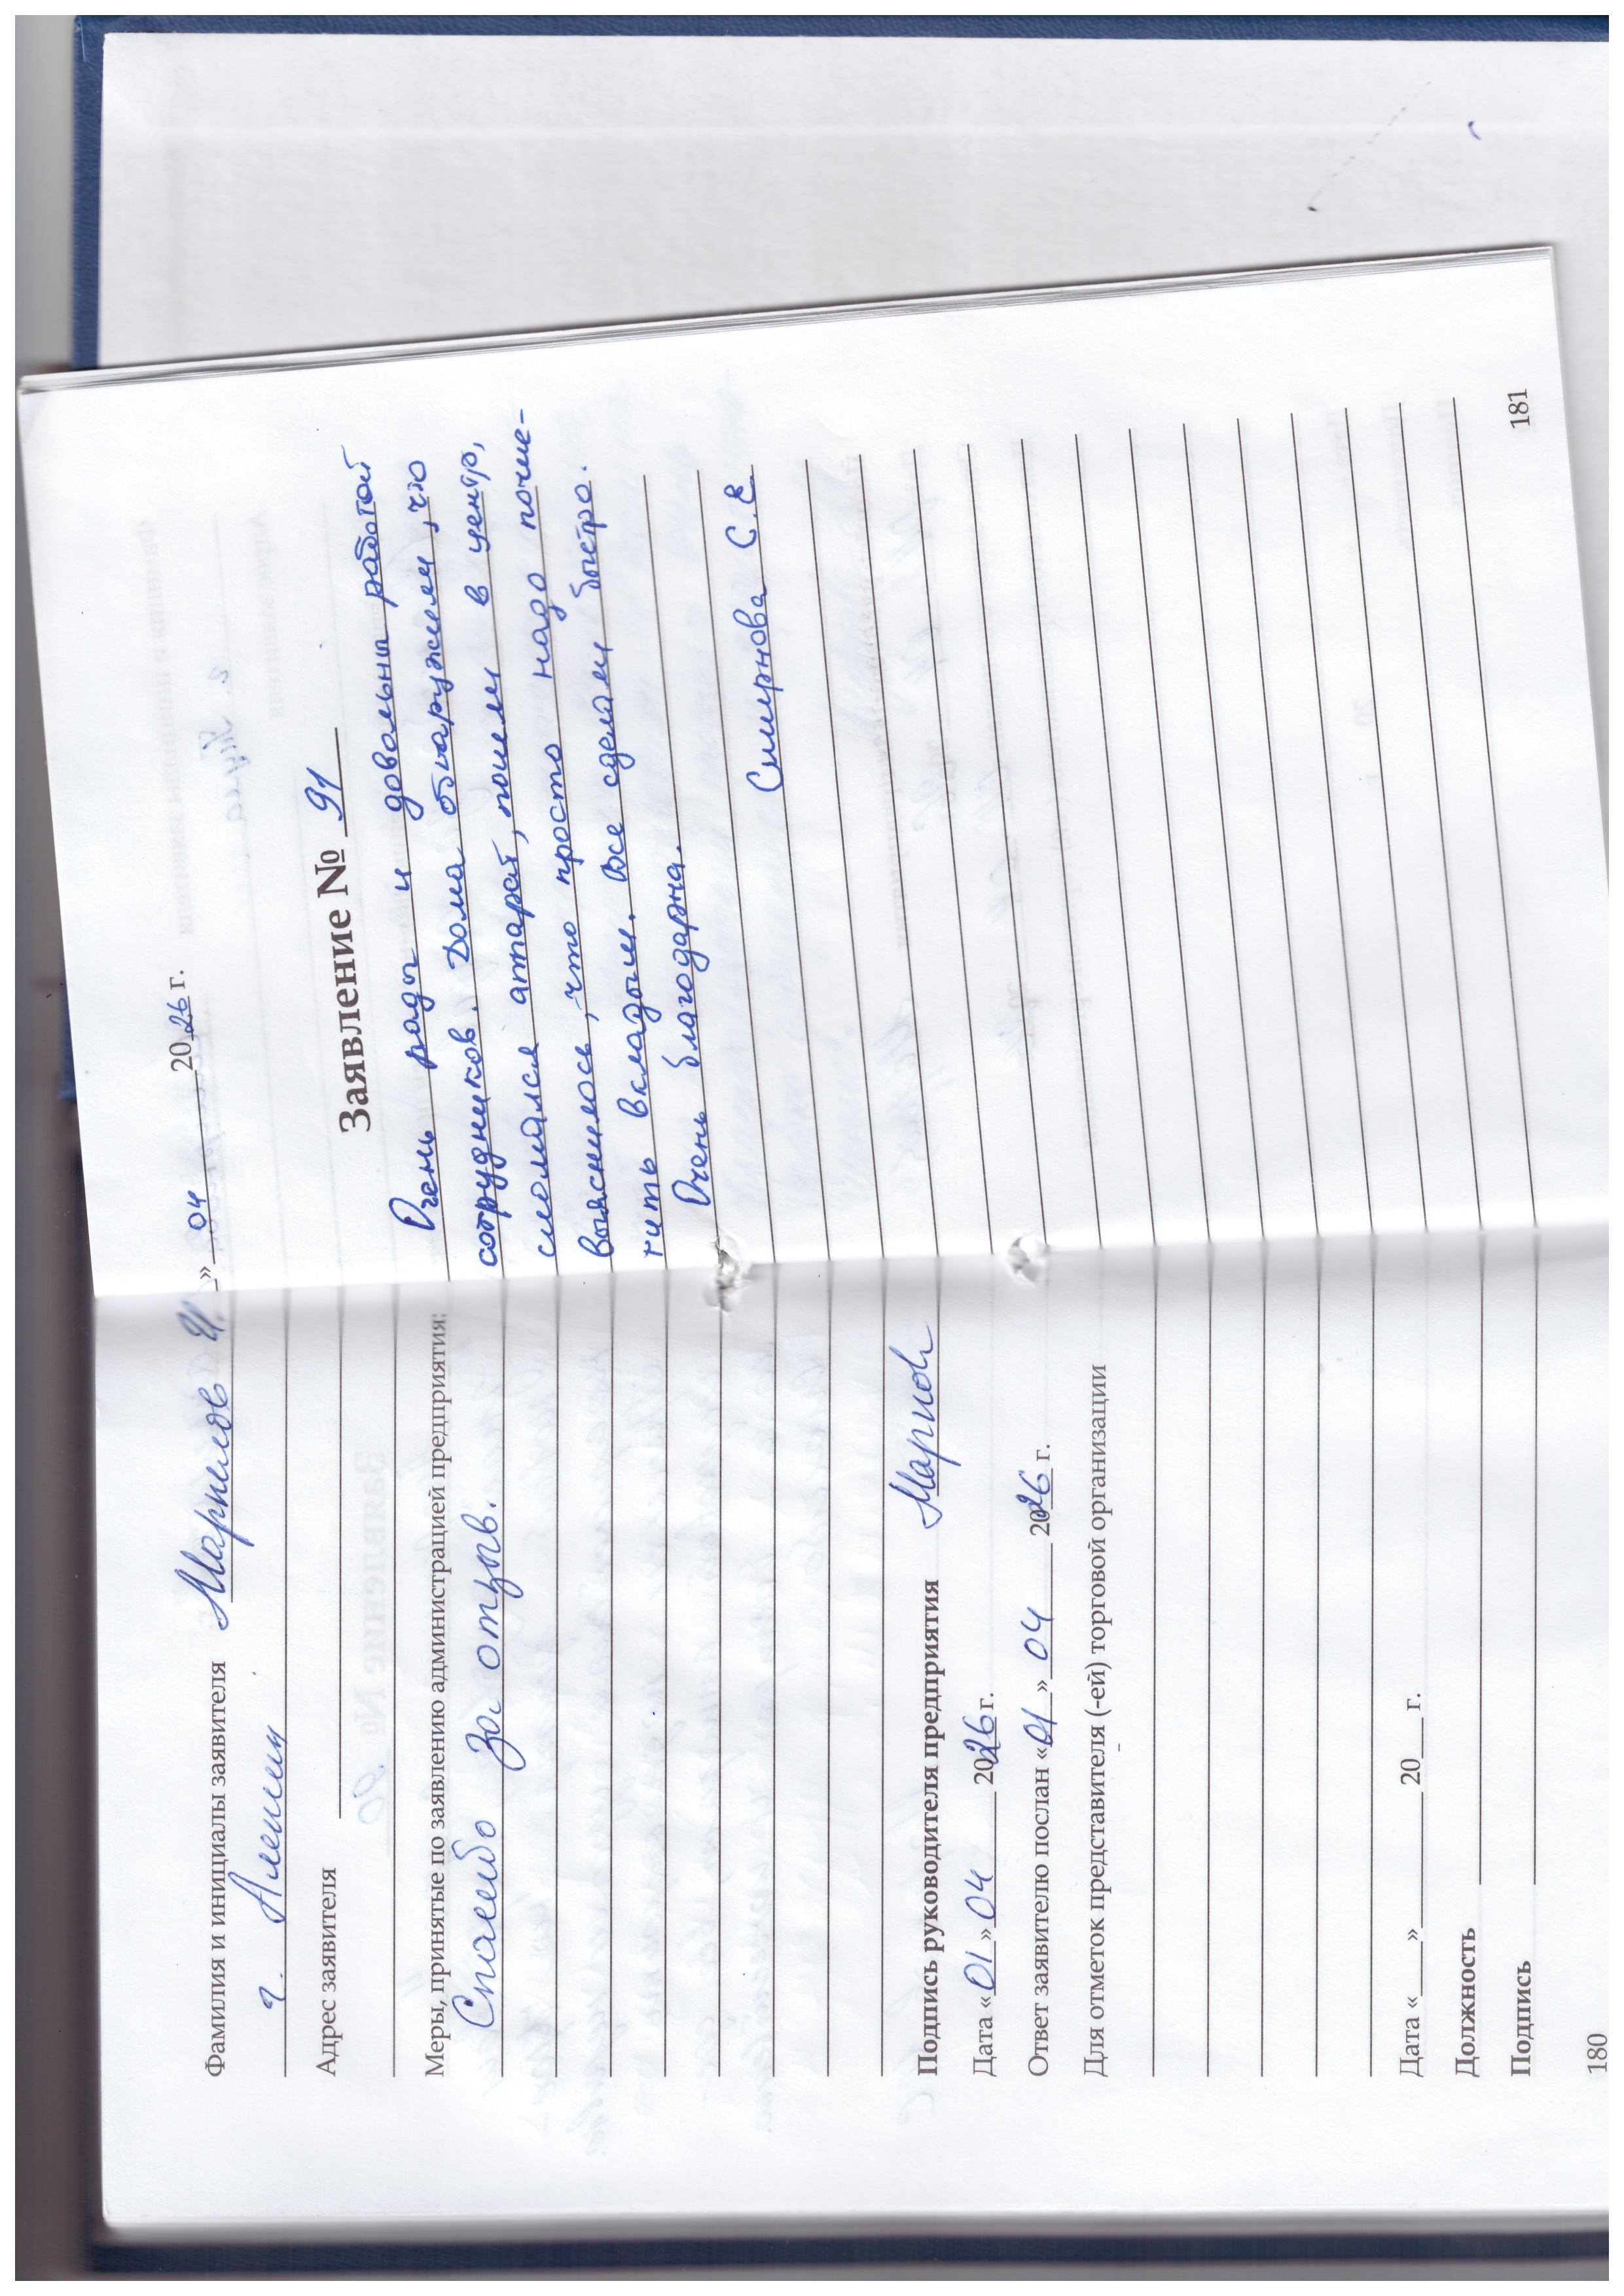 Фамилия и инициалы заявителя
г. Алешин
Адрес заявителя
Меры, принятые по заявлению администрацией предприятия:
Спасибо за отзыв.
Подпись руководителя предприятия
Дата «01» 04 2026 г.
Ответ заявителю послан «01» 04 2026 г.
Для отметок представителя (-ей) торговой организации
Дата «___» ______ 20___ г.
Должность
Подпись
180
» 04 2026 г.
Заявление № 91
Очень рады и довольны работой
сотрудников. Дома обнаружили, что
сломался аппарат, пошли в центр,
выяснилось, что просто надо почис-
тить вкладыш. Все сделали быстро.
Очень благодарна.
Смирнова С.В.
181